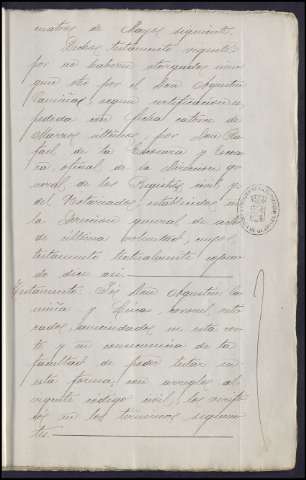 cuatro de Mayo siguiente.
Dicho testamento vigente
por no haberse otorgado nin
gun otro por el Don Agustin
Caminas, segun certificacion ex
pedida con fecha catorce de
Marzo último, por Don Ra
fael de la Escosura y Esco
sura oficial de la Direccion ge
neral de los Registros civil y
del Notariado, establecidos en
la Direccion general de actos
de última voluntad, cuyo
testamento testualmente copia
do dice asi
Testamento. Yo Don Agustin Ca
y coronel reti
rado, en esta cor
te y en consecuencia de la
facultad de poder testar en
esta forma, con arreglo al
vigente código civil, lo verifi
co en los términos siguien
tes.